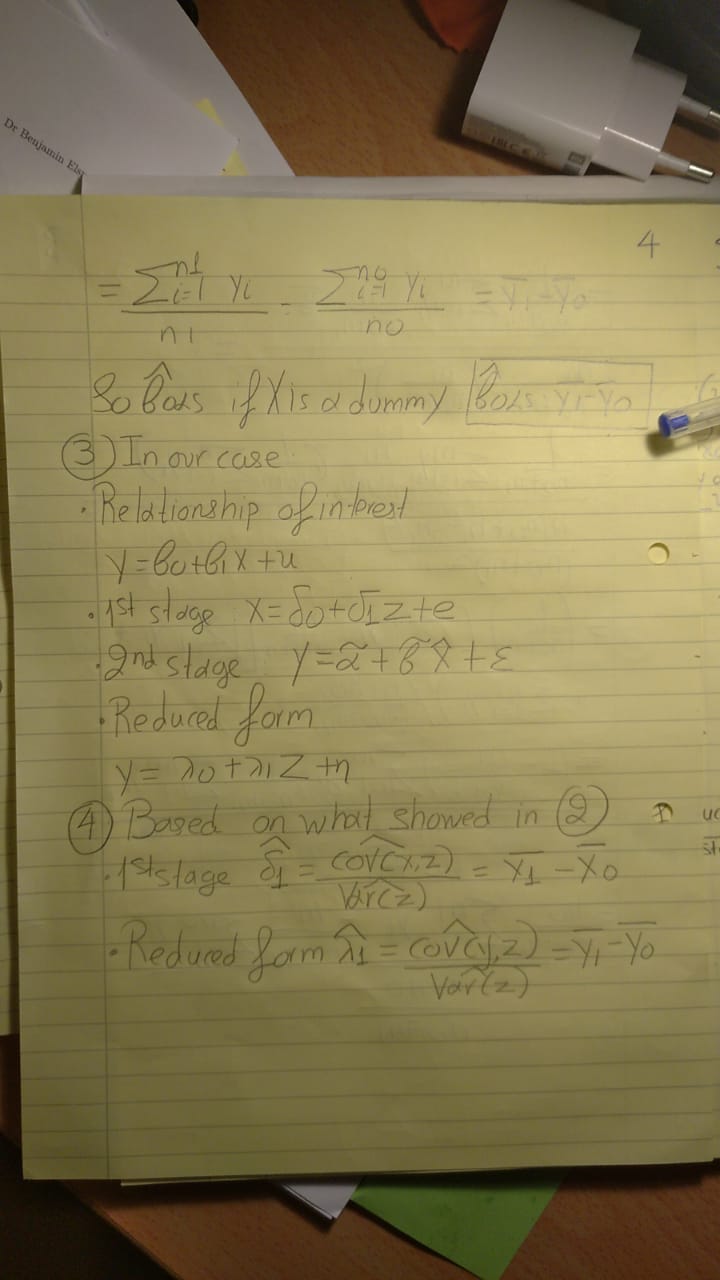 Dr Benjamin Els
4
= ∑_{i=1}^{n1} yi / n1 - ∑_{i=1}^{n0} yi / n0 = ȳ1 - ȳ0
So b̂OLS if X is a dummy b̂OLS: ȳ1-ȳ0
③ In our case
· Relationship of interest
y=b0+b1x+u
· 1st stage x=δ0+δ1z+e
· 2nd stage y=α̃+b̃x̂+ε
· Reduced form
y=λ0+λ1z+η
④ Based on what showed in ②
· 1st stage δ̂1 = côv(x,z) / Vâr(z) = x̄1 - x̄0
· Reduced form λ̂1 = côv(y,z) / Vâr(z) = ȳ1-ȳ0